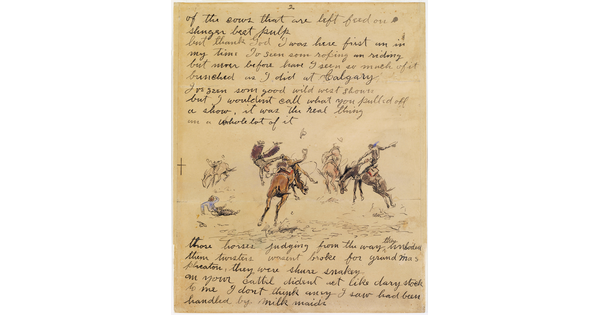 2
of the cows that are left feed on
shuger beet pulp
but thank God i was here first an in
my time Iv seen som roping an riding
but never before have I seen so much of it
bunched as I did at Calgary
Iv seen som good wild west shows
but I wouldent call what you pulled off
a show, it was the real thing
an a whole lot of it
those horses judging from the way they unloded
them twisters wasent broke for grand mas
pheaton, they were shure snakey
an your cattel dident act like dary stock
to me I dont think anny I saw had been
handled by milk maids